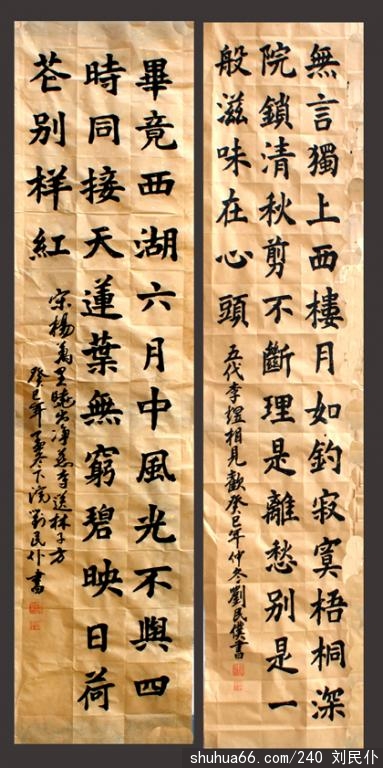 無言獨上西樓月如釣寂寞梧桐深
院鎖清秋剪不斷理是離愁别是一
般滋味在心頭
五代李煜相見歡癸巳年仲冬劉民僕書
畢竟西湖六月中風光不與四
時同接天蓮葉無窮碧映日荷
花别样紅
宋楊萬里曉出净慈寺送林子方
癸巳年孟冬下浣劉民仆書
shuhua66.com/240 刘民仆